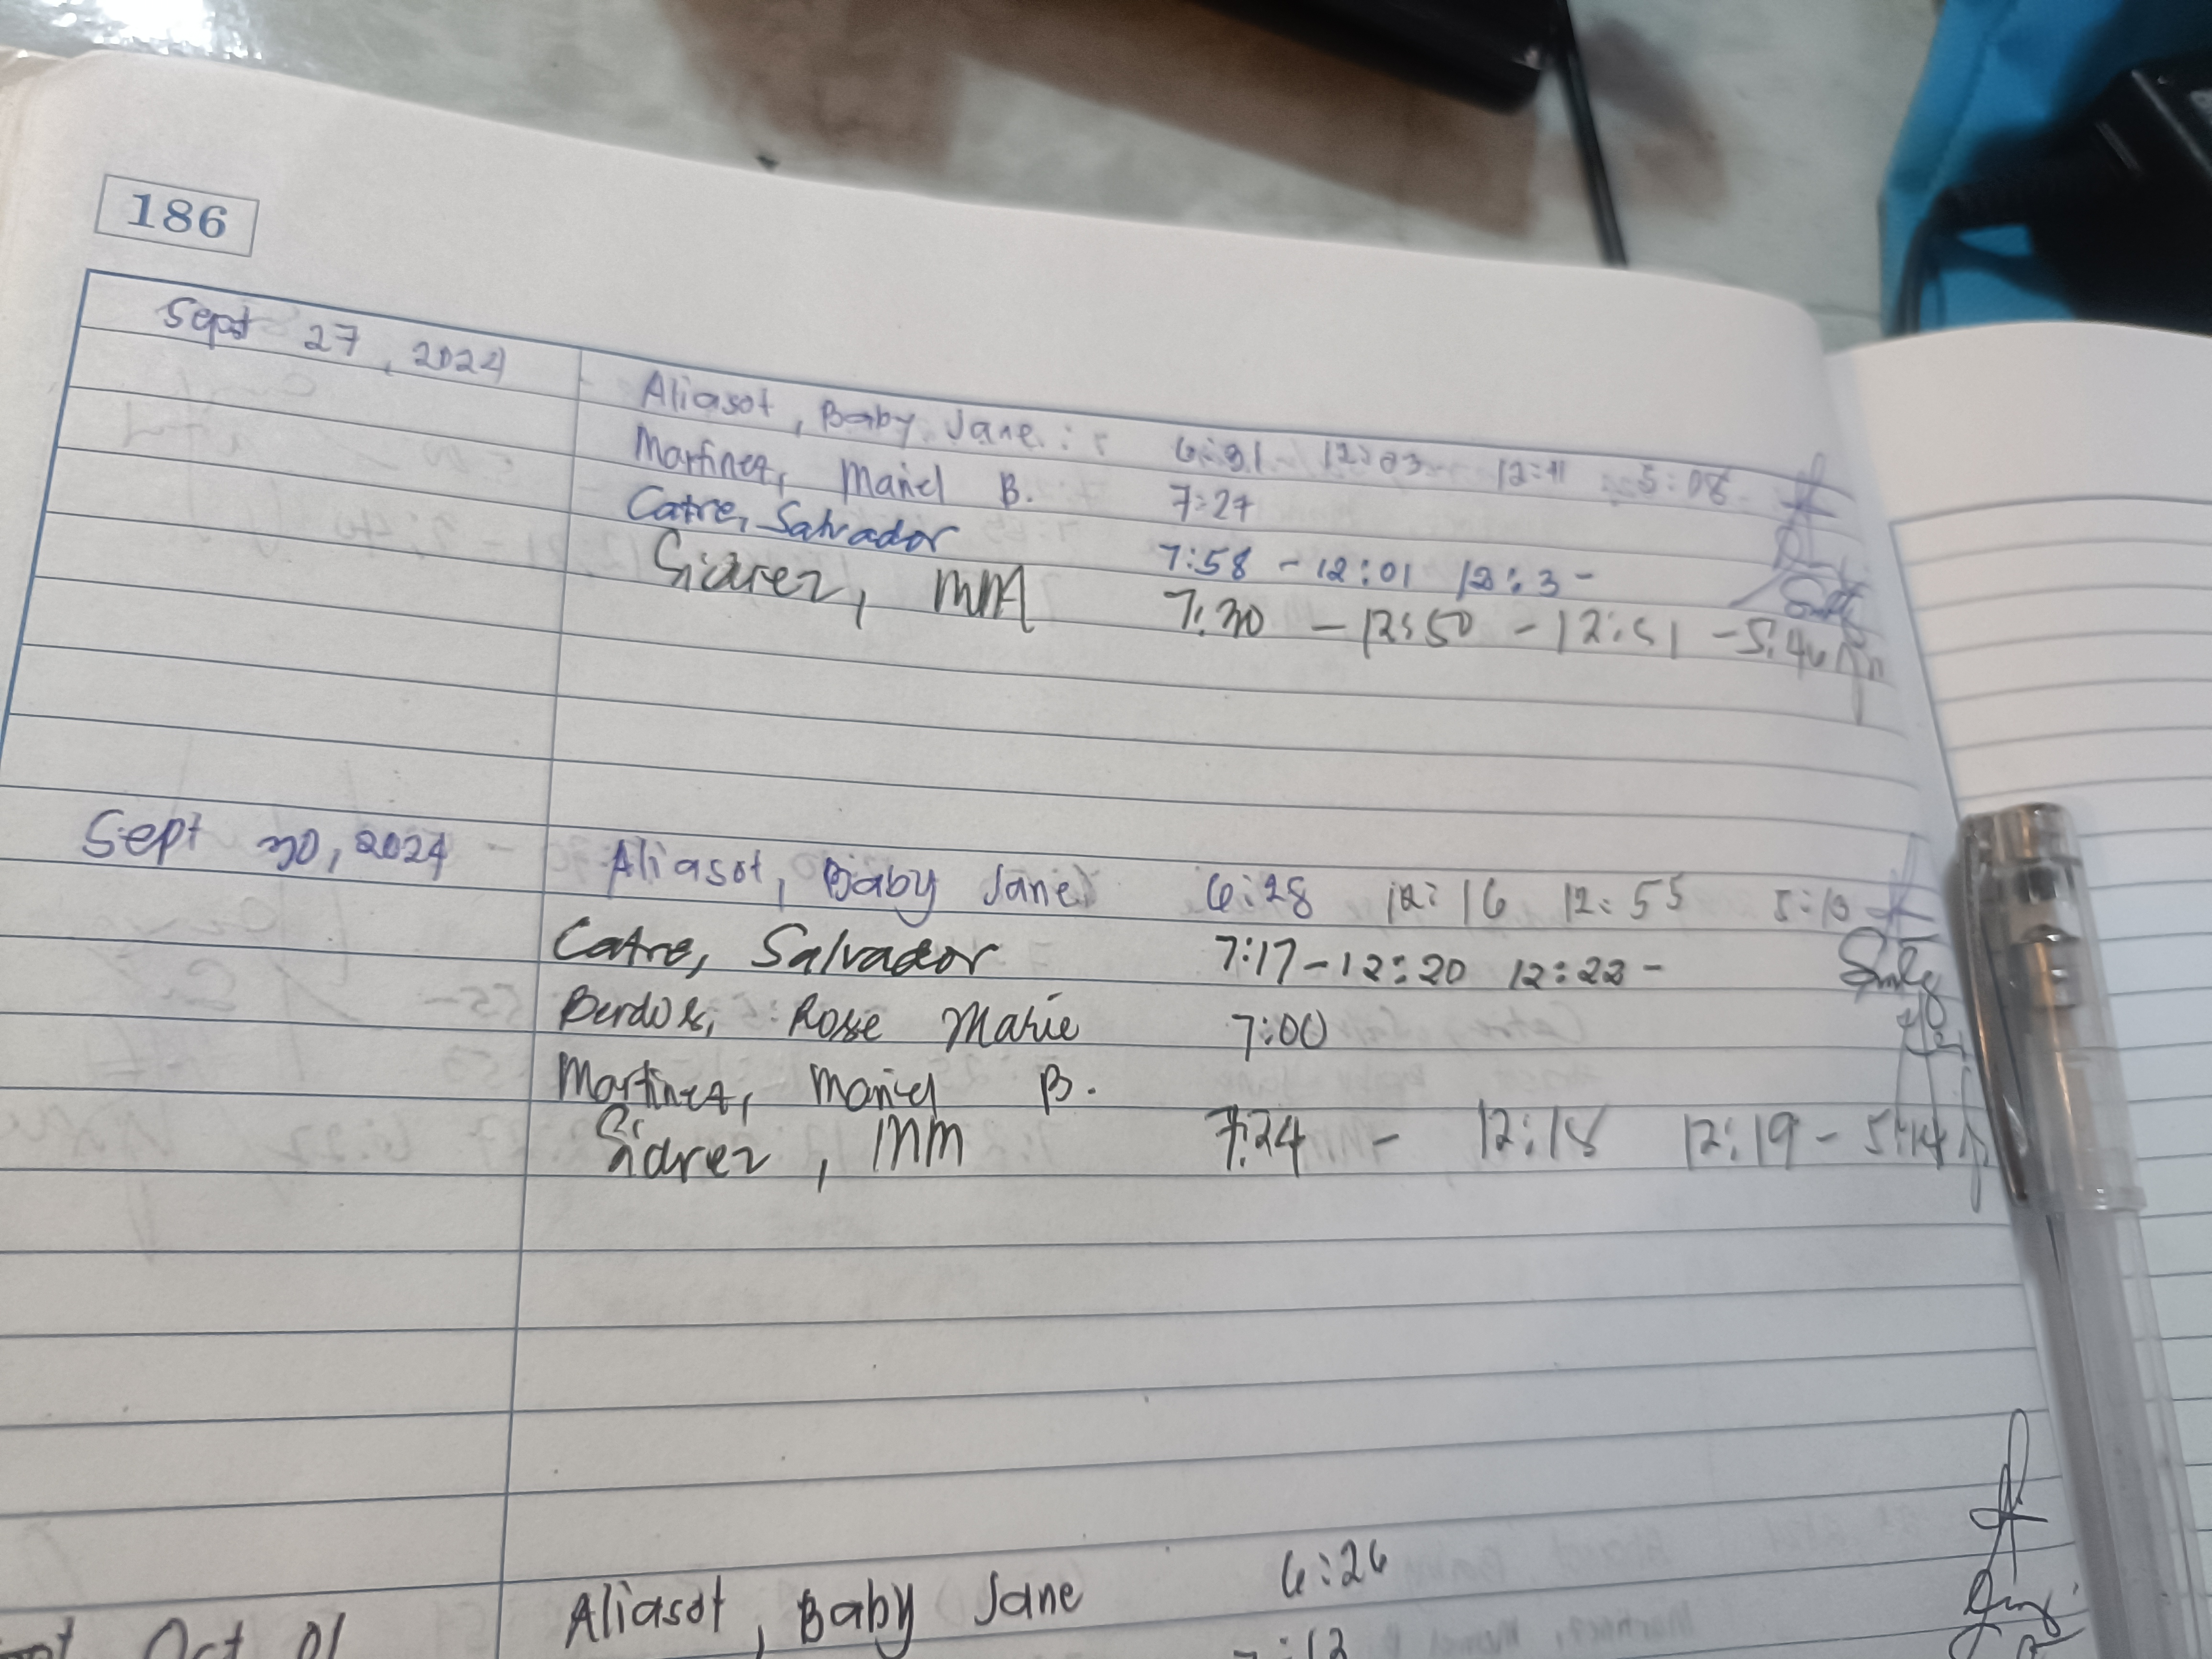 186
Sept 27, 2024
Aliasot, Baby Jane : 6:31 12:03 12:41 5:08
Martinez, Mariel B. 7:27
Catre, Salvador 7:58 - 12:01 12:3 -
Siarez, MM 7:30 - 12:50 - 12:51 - 5:46
Sept 30, 2024 - Aliasot, Baby Jane 6:28 12:16 12:55 5:10
Catre, Salvador 7:17 - 12:20 12:22 -
Berdos, Rose Marie 7:00
Martinez, Mariel B.
Siarez, MM 7:24 - 12:18 12:19 - 5:14
Aliasot, Baby Jane 6:26
Oct 01